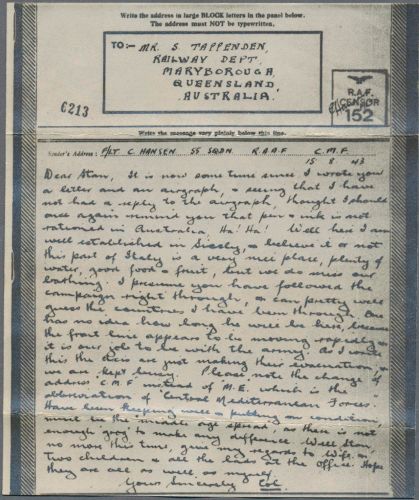 Write the address in large BLOCK letters in the panel below.
The address must NOT be typewritten.
TO:- MR. S TAPPENDEN,
RAILWAY DEPT.
MARYBOROUGH,
QUEENSLAND,
AUSTRALIA.
6213
R.A.F.
CENSOR
152
Write the message very plainly below this line.
Sender's Address: F/LT C HANSEN 55 SQDN. R.A.A.F C.M.F
15.8.43
Dear Stan, It is now some time since I wrote you
a letter and an airgraph, & seeing that I have
not had a reply to the airgraph, thought I should
once again remind you that pen & ink is not
rationed in Australia, Ha! Ha! Well here I am
well established in Sicily, & believe it or not
this part of Italy is a very nice place, plenty of
water, good food & fruit, but we do miss our
bathing. I presume you have followed the
campaign right through, & can pretty well
guess the countries I have been through. One
has no idea how long he will be here, because
the front line appears to be moving rapidly &
it is our job to be with the army. As I write
this the are just making their evacuation &
we are kept busy. Please note the change of
address C.M.F instead of M.E. which is the
abbreviation of "Central Mediterranean Forces."
Have been keeping well & putting on condition,
must be the middle age spread, as there is not
enough grog to make any difference. Well Stan
no more this time, give my regards to Wife &
two children & all the lads at the office. Hope
they are all as well as myself.
Yours Sincerely Col.